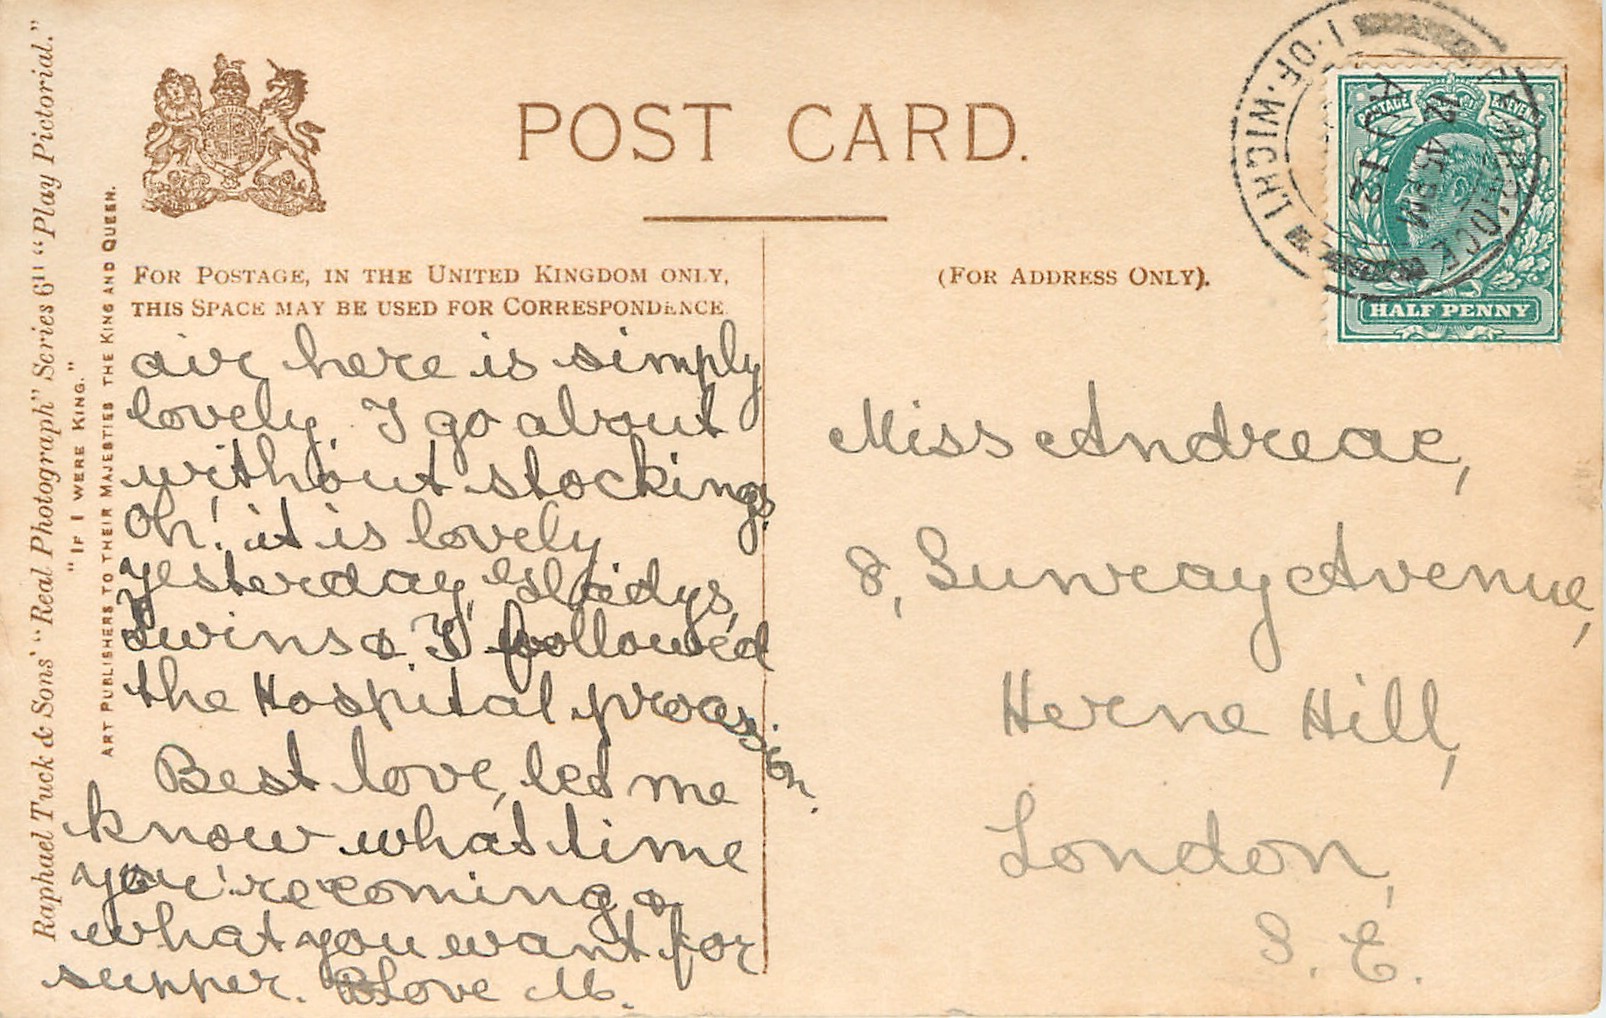 POST CARD.
FOR POSTAGE, IN THE UNITED KINGDOM ONLY,
THIS SPACE MAY BE USED FOR CORRESPONDENCE
(FOR ADDRESS ONLY).
Raphael Tuck & Sons' "Real Photograph" Series 611 "Play Pictorial."
"IF I WERE KING."
ART PUBLISHERS TO THEIR MAJESTIES THE KING AND QUEEN.
air here is simply
lovely, I go about
without stockings,
Oh! it is lovely
yesterday, Gladys,
twins & I followed
the Hospital procession.
Best love, let me
know what time
you're coming &
what you want for
supper. Love M.
Miss Andreae,
8, Sunray Avenue,
Herne Hill,
London,
S. E.
I. OF. WIGHT
POSTAGE REVENUE
HALF PENNY
AU 12